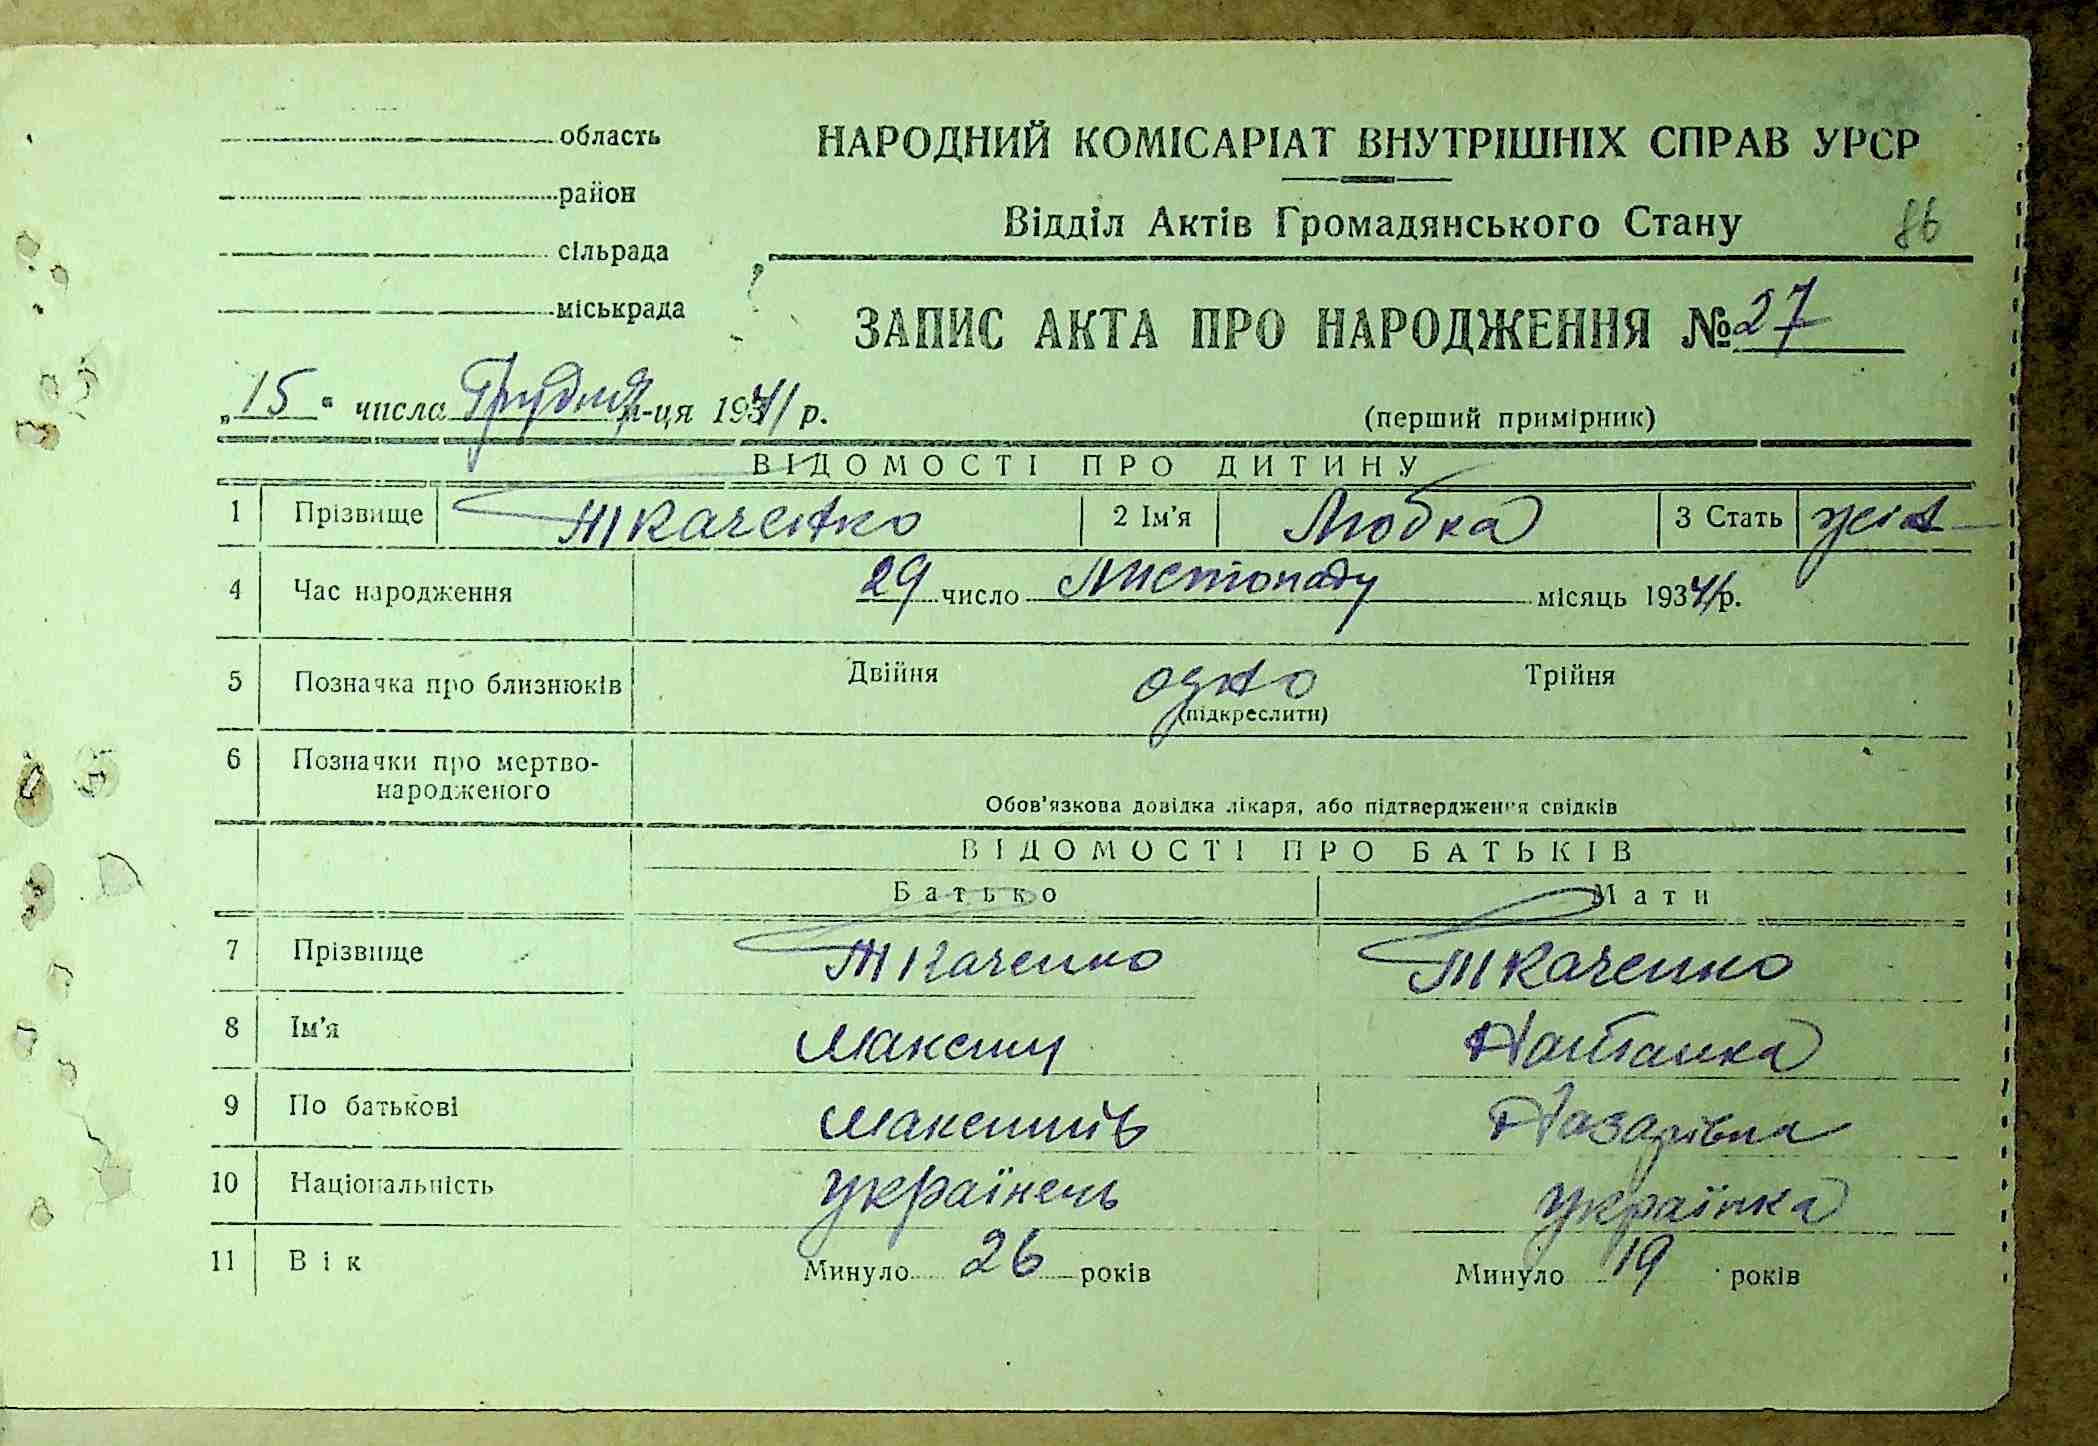 область
район
сільрада
міськрада
НАРОДНИЙ КОМІСАРІАТ ВНУТРІШНІХ СПРАВ УРСР
Відділ Актів Громадянського Стану
86
ЗАПИС АКТА ПРО НАРОДЖЕННЯ № 27
„15“ числа Грудня м-ця 1941 р.
(перший примірник)
ВІДОМОСТІ ПРО ДИТИНУ
1 Прізвище Ткаченко 2 Ім'я Любка 3 Стать жін
4 Час народження 29 число Листопаду місяць 1941 р.
5 Позначка про близнюків Двійня одно Трійня
(підкреслити)
6 Позначки про мертво-
народженого
Обов'язкова довідка лікаря, або підтвердження свідків
ВІДОМОСТІ ПРО БАТЬКІВ
Батько Мати
7 Прізвище Ткаченко Ткаченко
8 Ім'я Максим
9 По батькові Максимів Назарівна
10 Національність українець українка
11 Вік Минуло 26 років Минуло 19 років